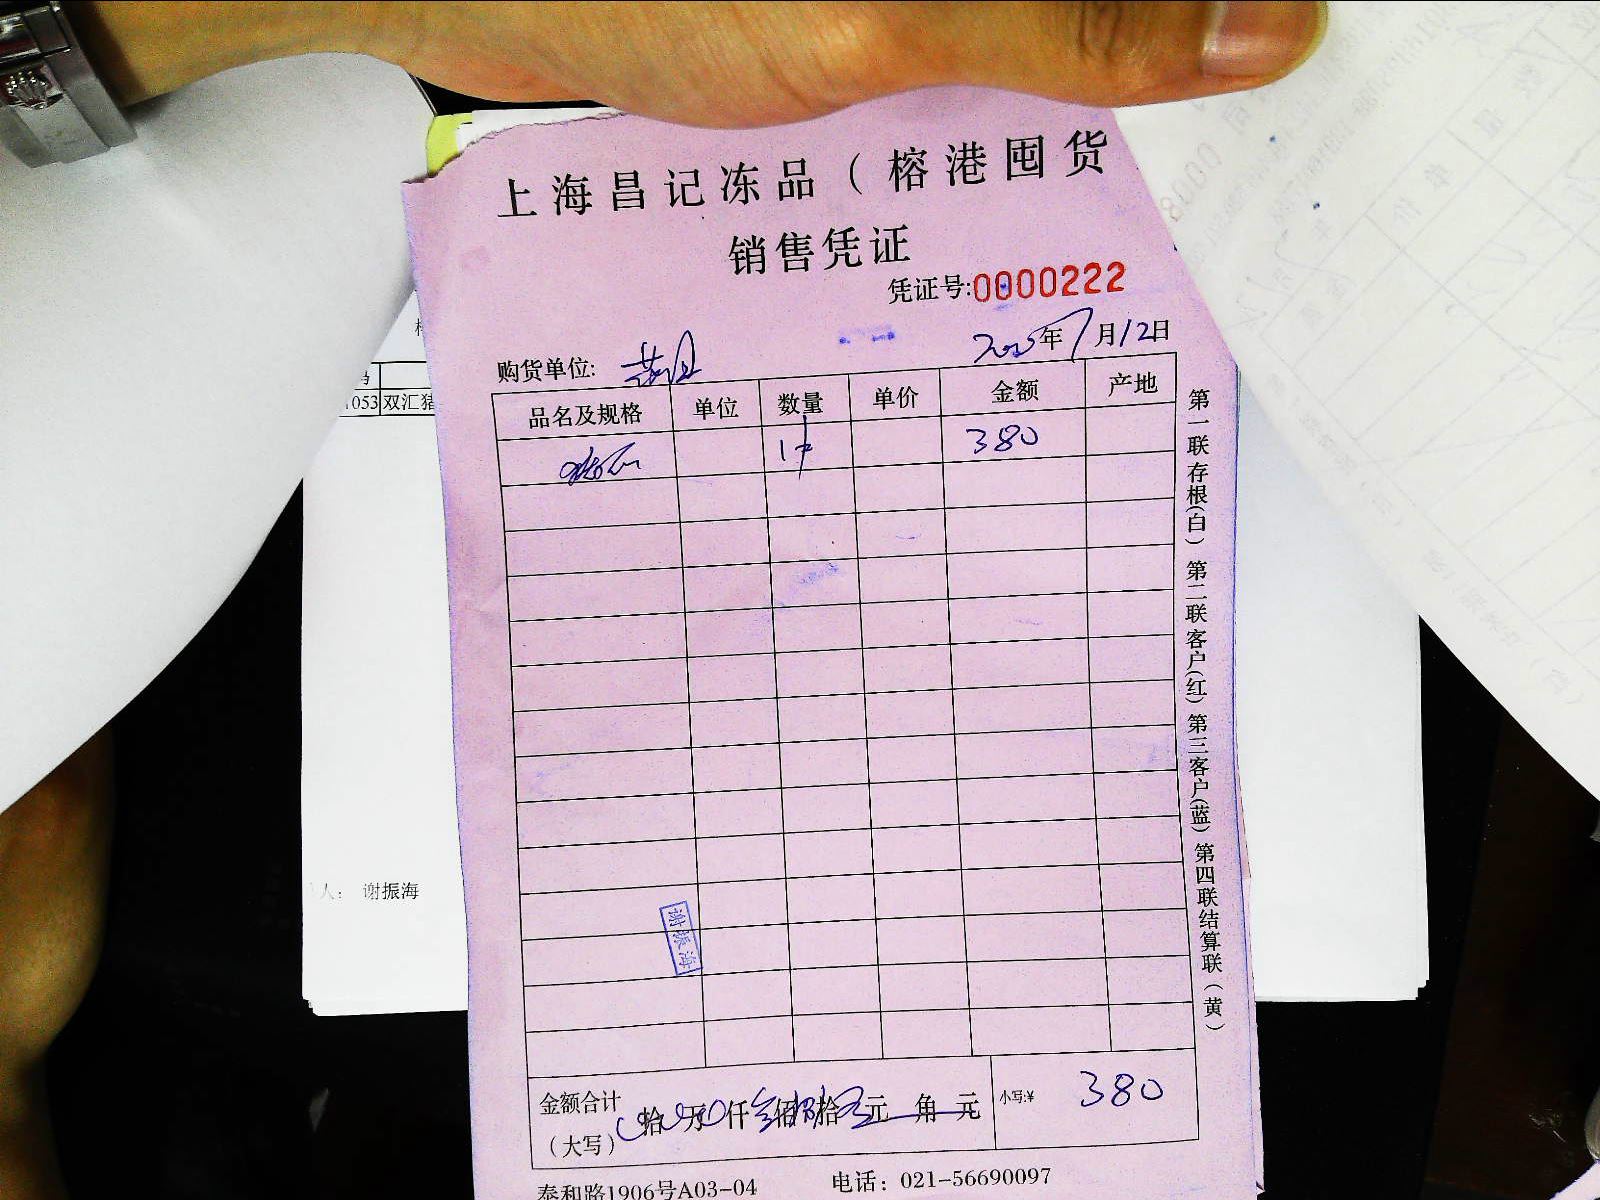 上海昌记冻品（榕港囤货
销售凭证
凭证号:0000222
年7月12日
购货单位:
品名及规格 单位 数量 单价 金额 产地
1件 380
第一联存根(白) 第二联客户(红) 第三客户(蓝) 第四联结算联(黄)
谢振海
金额合计
(大写) 拾 万 仟 佰 拾 元 角 元 小写:¥ 380
泰和路1906号A03-04 电话: 021-56690097
1053 双汇猪
人: 谢振海